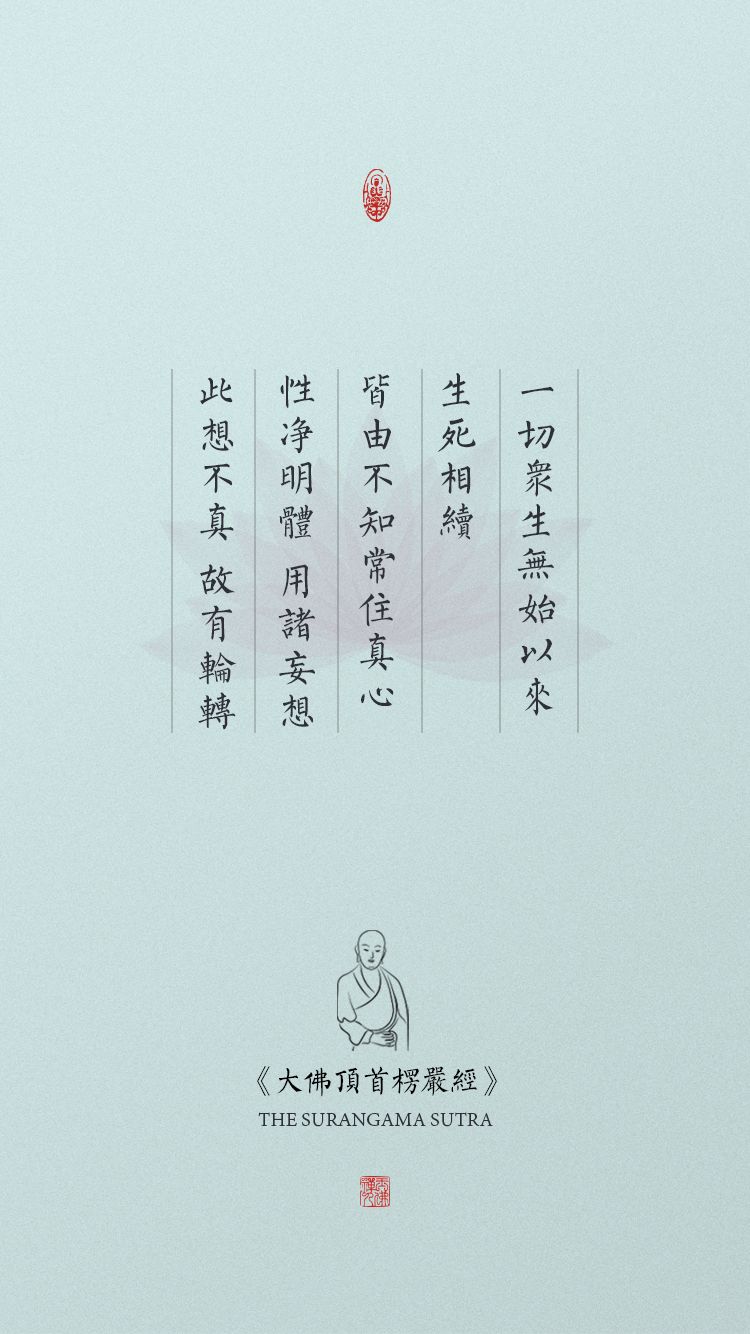 一切衆生無始以來
生死相續
皆由不知常住真心
性净明體 用諸妄想
此想不真 故有輪轉
《大佛頂首楞嚴經》
THE SURANGAMA SUTRA